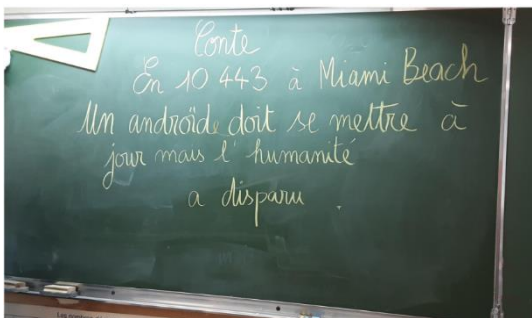 Conte
En 10 443 à Miami Beach
Un androïde doit se mettre à
jour mais l'humanité
a disparu